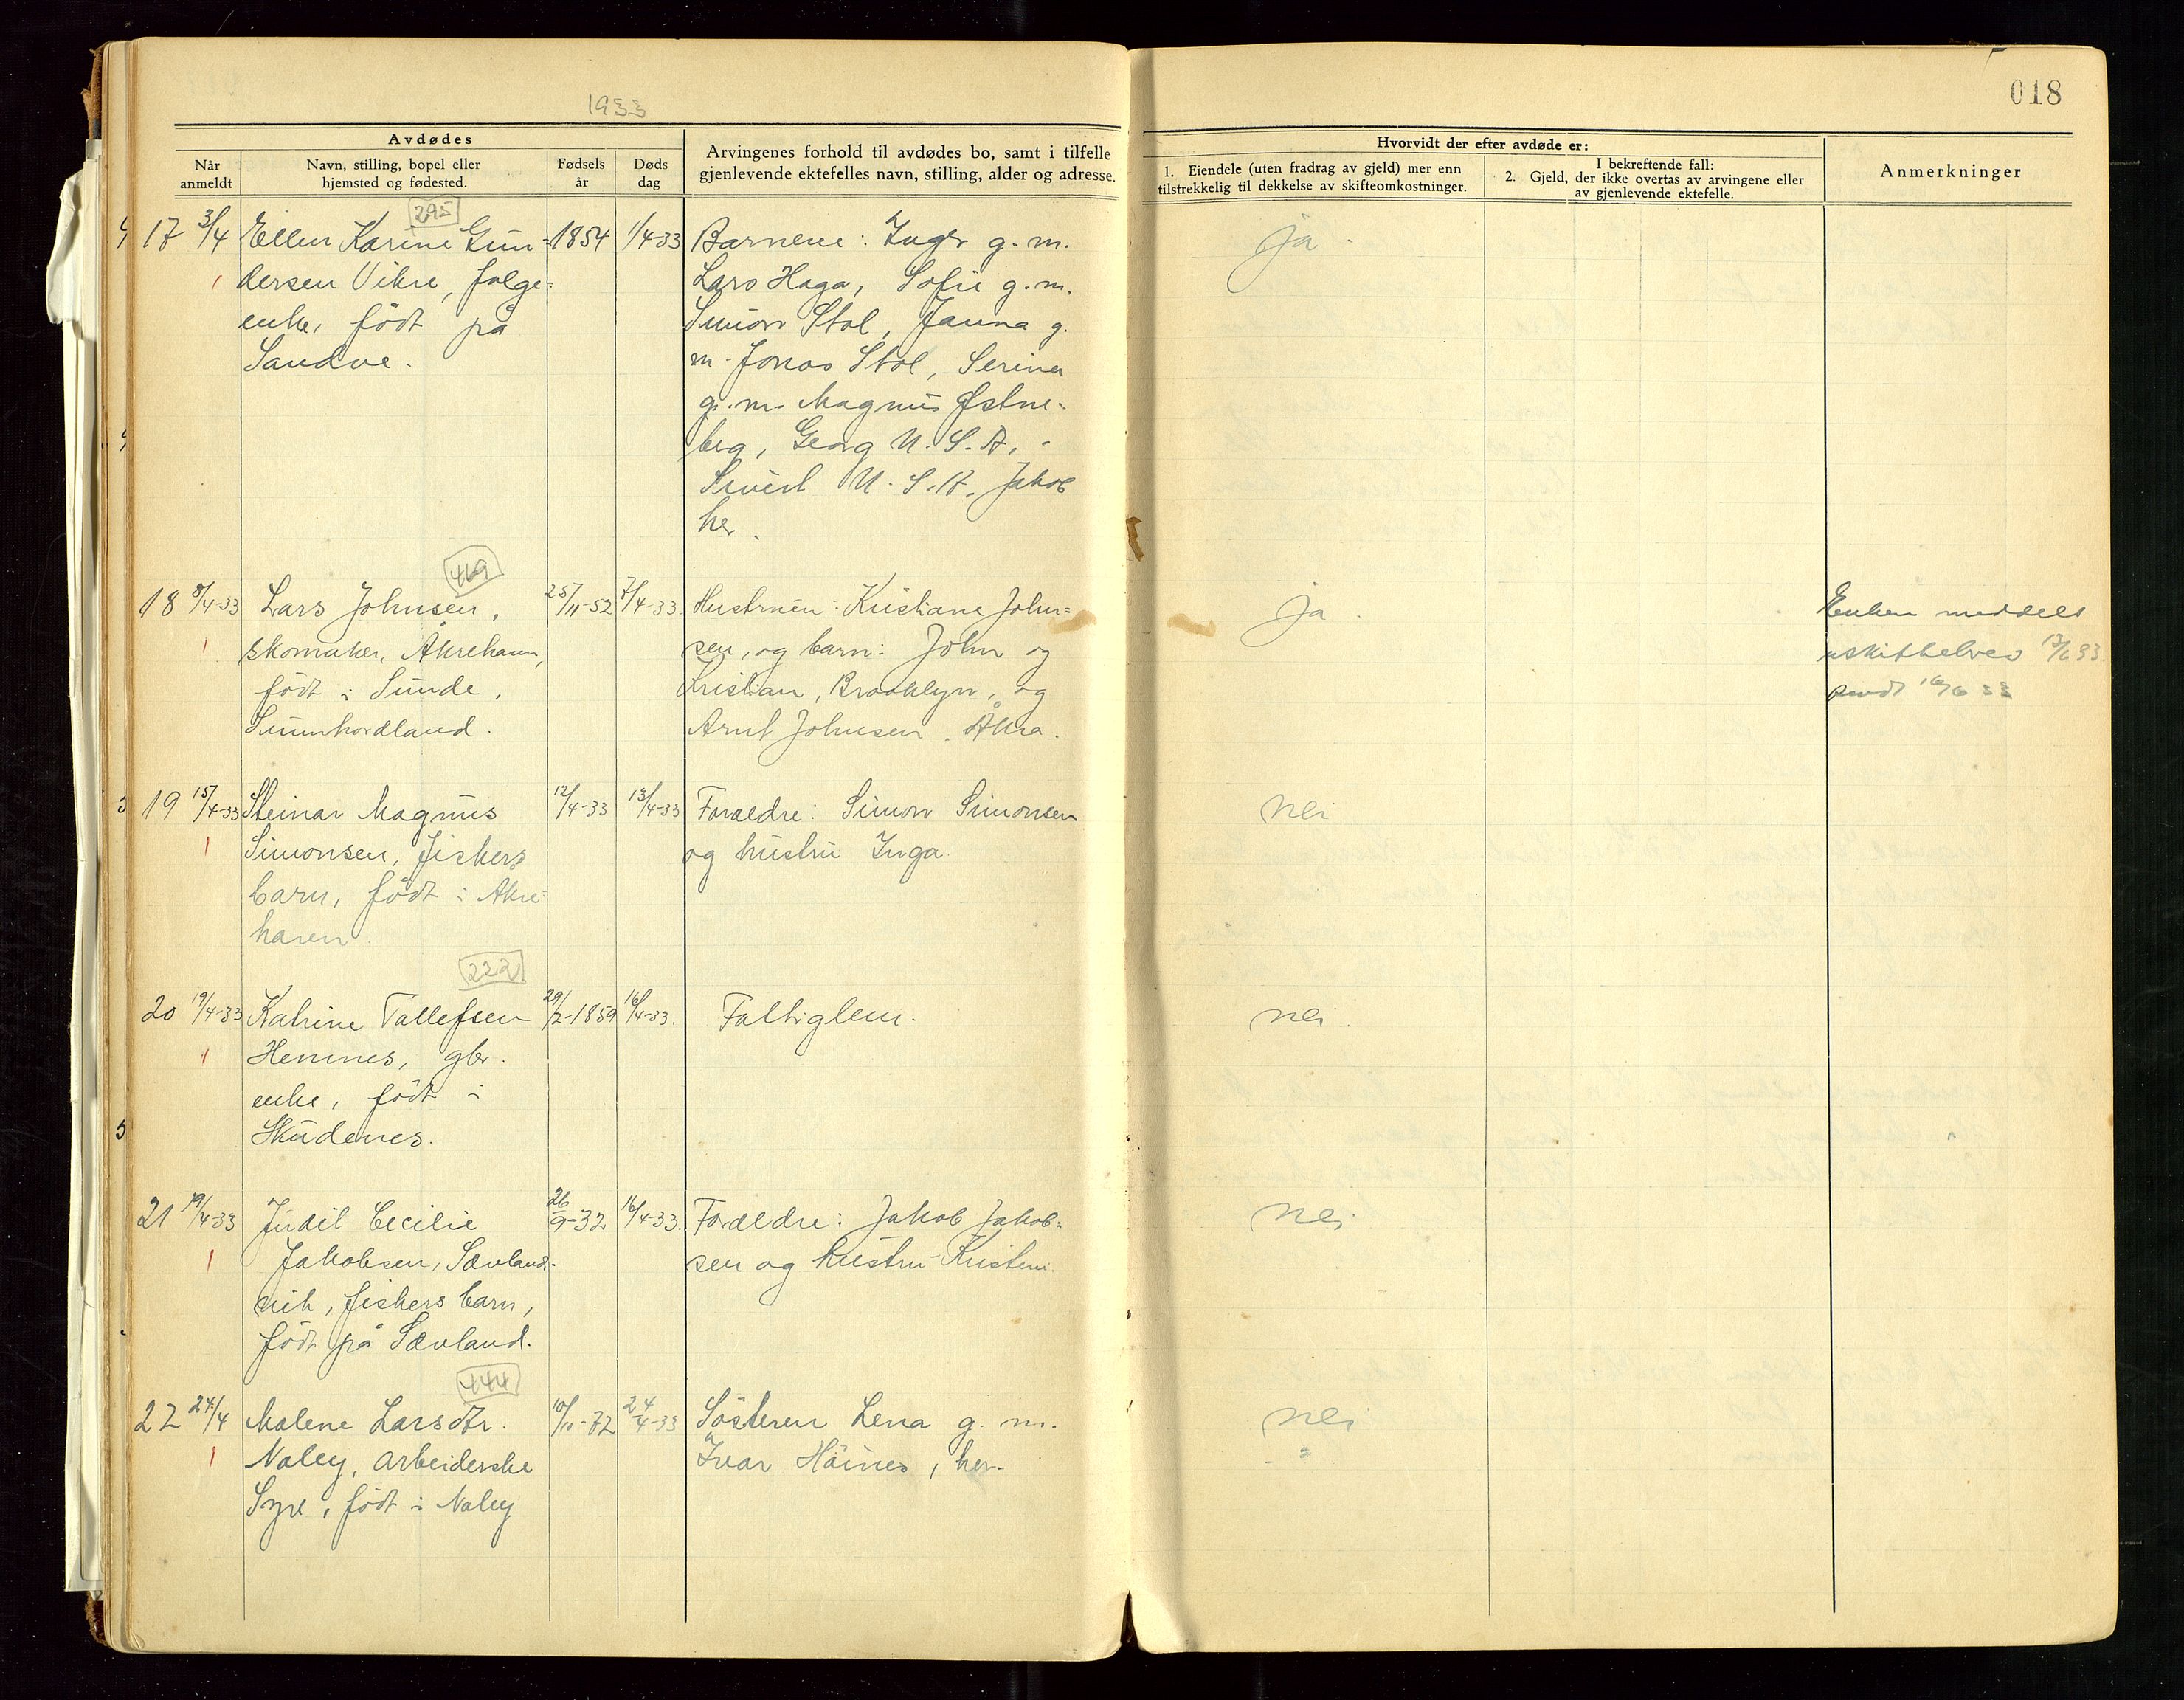 1933
018
Avdødes
Når
anmeldt
Navn, stilling, bopel eller
hjemsted og fødested.
Fødsels
år
Døds
dag
Arvingenes forhold til avdødes bo, samt i tilfelle
gjenlevende ektefelles navn, stilling, alder og adresse.
Hvorvidt der efter avdøde er:
1. Eiendele (uten fradrag av gjeld) mer enn
tilstrekkelig til dekkelse av skifteomkostninger.
I bekreftende fall:
2. Gjeld, der ikke overtas av arvingene eller
av gjenlevende ektefelle.
Anmerkninger
295
17 3/4 Ellen Karine Gun-
dersen Vikre, folge-
enke, født på
Sandve.
1854 1/4-33
Barnene: Inger g. m.
Lars Haga, Sofie g. m.
Simon Stol, Janna g.
m. Jonas Stol, Serina
g. m. Magnus Østne-
berg, Georg U. S. A.,
Sivert U. S. A. Jakob
her.
ja.
469
18 8/4-33 Lars Johnsen,
skomaker, Åkrehavn,
født i Sunde,
Sunnhordland.
25/11-52 7/4-33.
Hustruen: Kristiane John-
sen, og barn: John og
Kristian, Brooklyn, og
Arnt Johnsen. Åkra.
ja.
Enken meddelt
13/6 33.
16/6 33
19 15/4-33 Steinar Magnus
Simonsen, fiskers
barn, født i Åkre-
havn.
12/4-33 13/4-33
Foreldre: Simon Simonsen
og hustru Inga.
nei
222
20 19/4-33 Katrine Tollefsen
Hemnes, gbr.
enke, født i
Skudenes.
29/2-1859 16/4-33.
Fattiglem.
nei.
21 19/4-33 Judit Cecilie
Jakobsen, Sævland-
vik, fiskers barn,
født på Sævland.
26/9-32 16/4-33.
Foreldre: Jakob Jakob-
sen og hustru Kristine
nei
444
22 24/4 Malene Larsdtr.
Naley, arbeiderske
Syre, født i Naley
10/11-72 24/4-33
Søsteren Lena g. m.
Ivar Høines, her.
nei